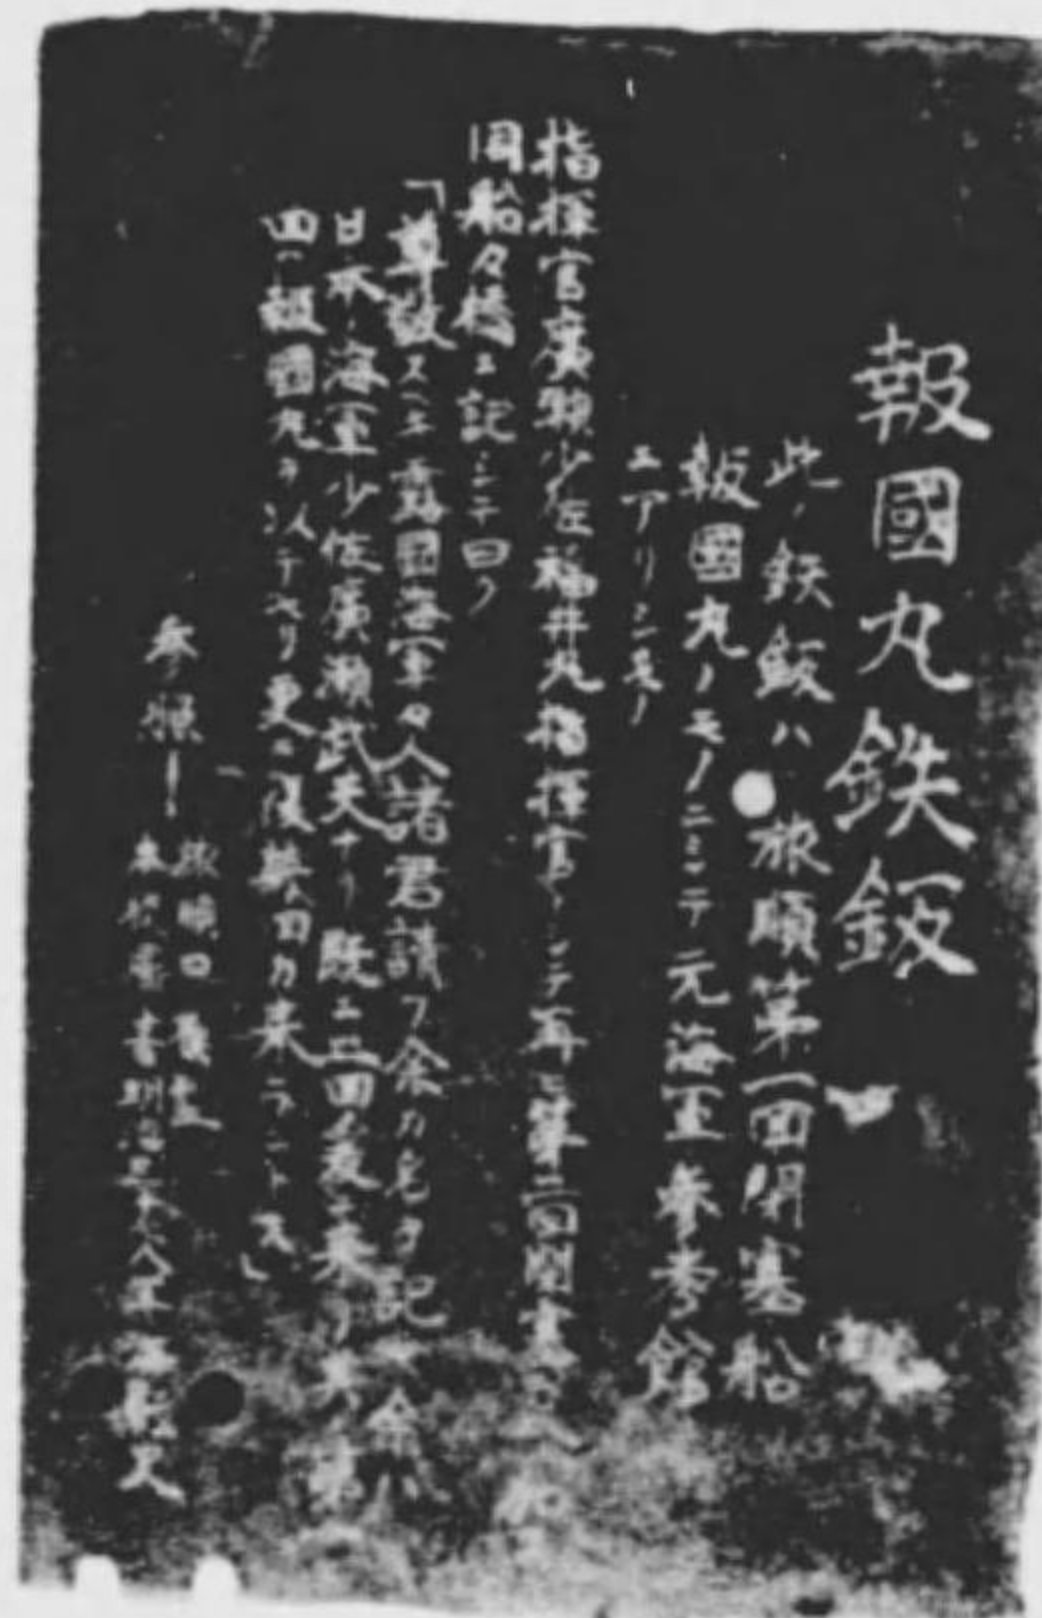 報國丸鉄鈑
此ノ鉄鈑ハ旅順第一回閉塞船
報國丸ノモノニシテ元海軍參考館
ニアリシモノ
指揮官廣瀬少佐福井丸指揮官トシテ再ヒ第二回閉塞ニ
同船々橋ニ記シテ曰ク
「尊敬スヘキ露國海軍々人諸君請フ余カ名ヲ記セヨ余ハ
日本ノ海軍少佐廣瀬武夫ナリ既ニ二回爰ニ来リ其第
回ハ報國丸ヲ以テセリ更ニ幾回カ来ラントス」
參照
旅順口
明治三十八年